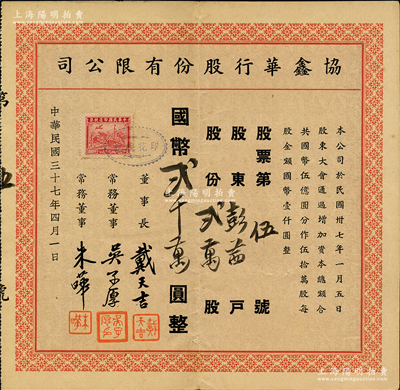 上海陽明拍賣
協鑫華行股份有限公司
本公司於民國卅七年一月五日
股東大會通過增加資本總額合
共國幣伍億圓分作伍拾萬股每
股金額國幣壹仟圓整
股票第伍號
股東彭茁戶
股份貳萬股
國幣貳千萬圓整
董事長 戴天吉
常務董事 吳子厚
常務董事 朱曄
中華民國三十七年四月一日
第
伍
號